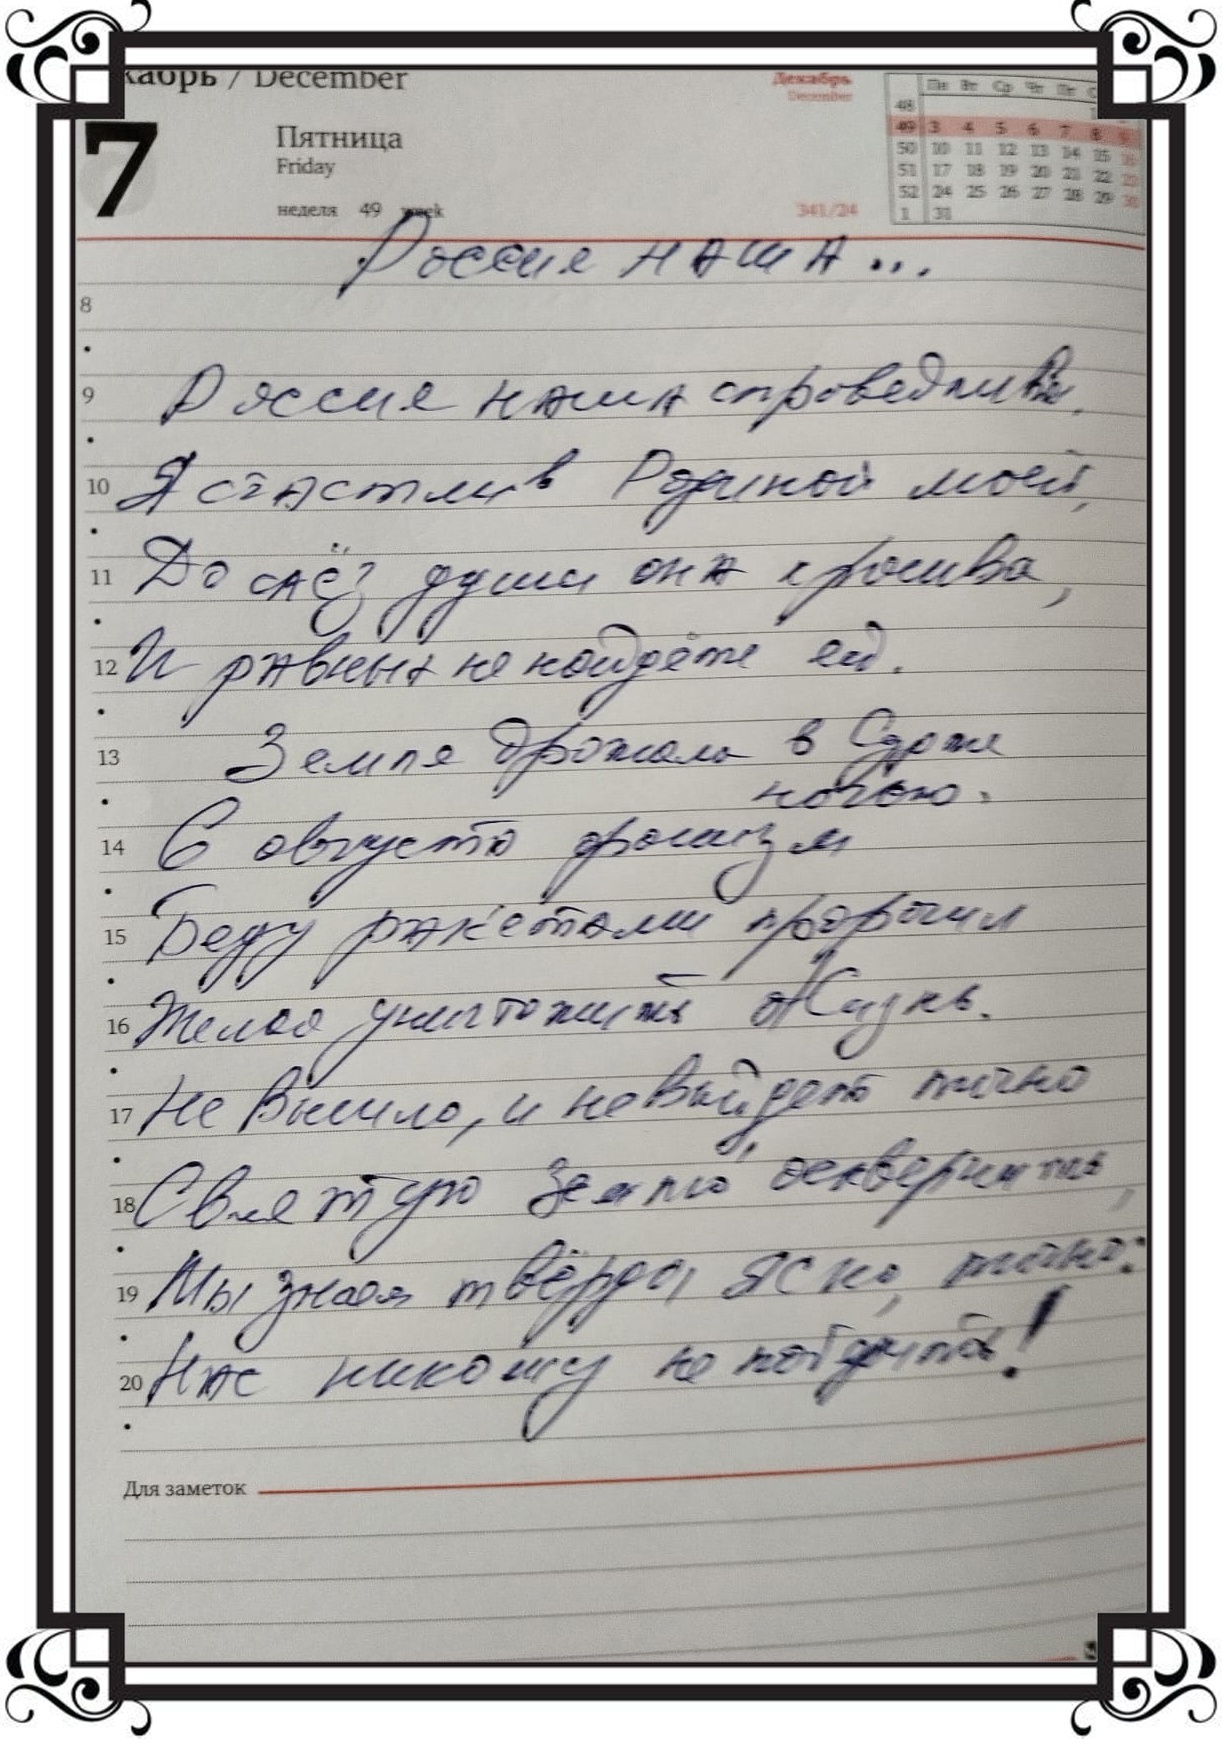 кабрь / December
Декабрь
December
Пн Вт Ср Чт Пт С
48
49 3 4 5 6 7 8 9
50 10 11 12 13 14 15 16
51 17 18 19 20 21 22 23
52 24 25 26 27 28 29 30
1 31
7
Пятница
Friday
неделя 49 week
341/24
Россия наша...
8
9 Россия наша справедлива,
10 Я счастлив Родиной моей,
11 До слёз души она красива,
12 И равных не найдёте ей.
13 Земля дрожала в Судже
ночью.
14 С августа фашизм
15 Беду ракетами пророчил
16 Желая уничтожить Жизнь.
17 Не вышло, и не выйдет точно
18 Святую землю осквернить,
19 Мы знаем твёрдо, ясно, точно:
20 Нас никому не победить!
Для заметок